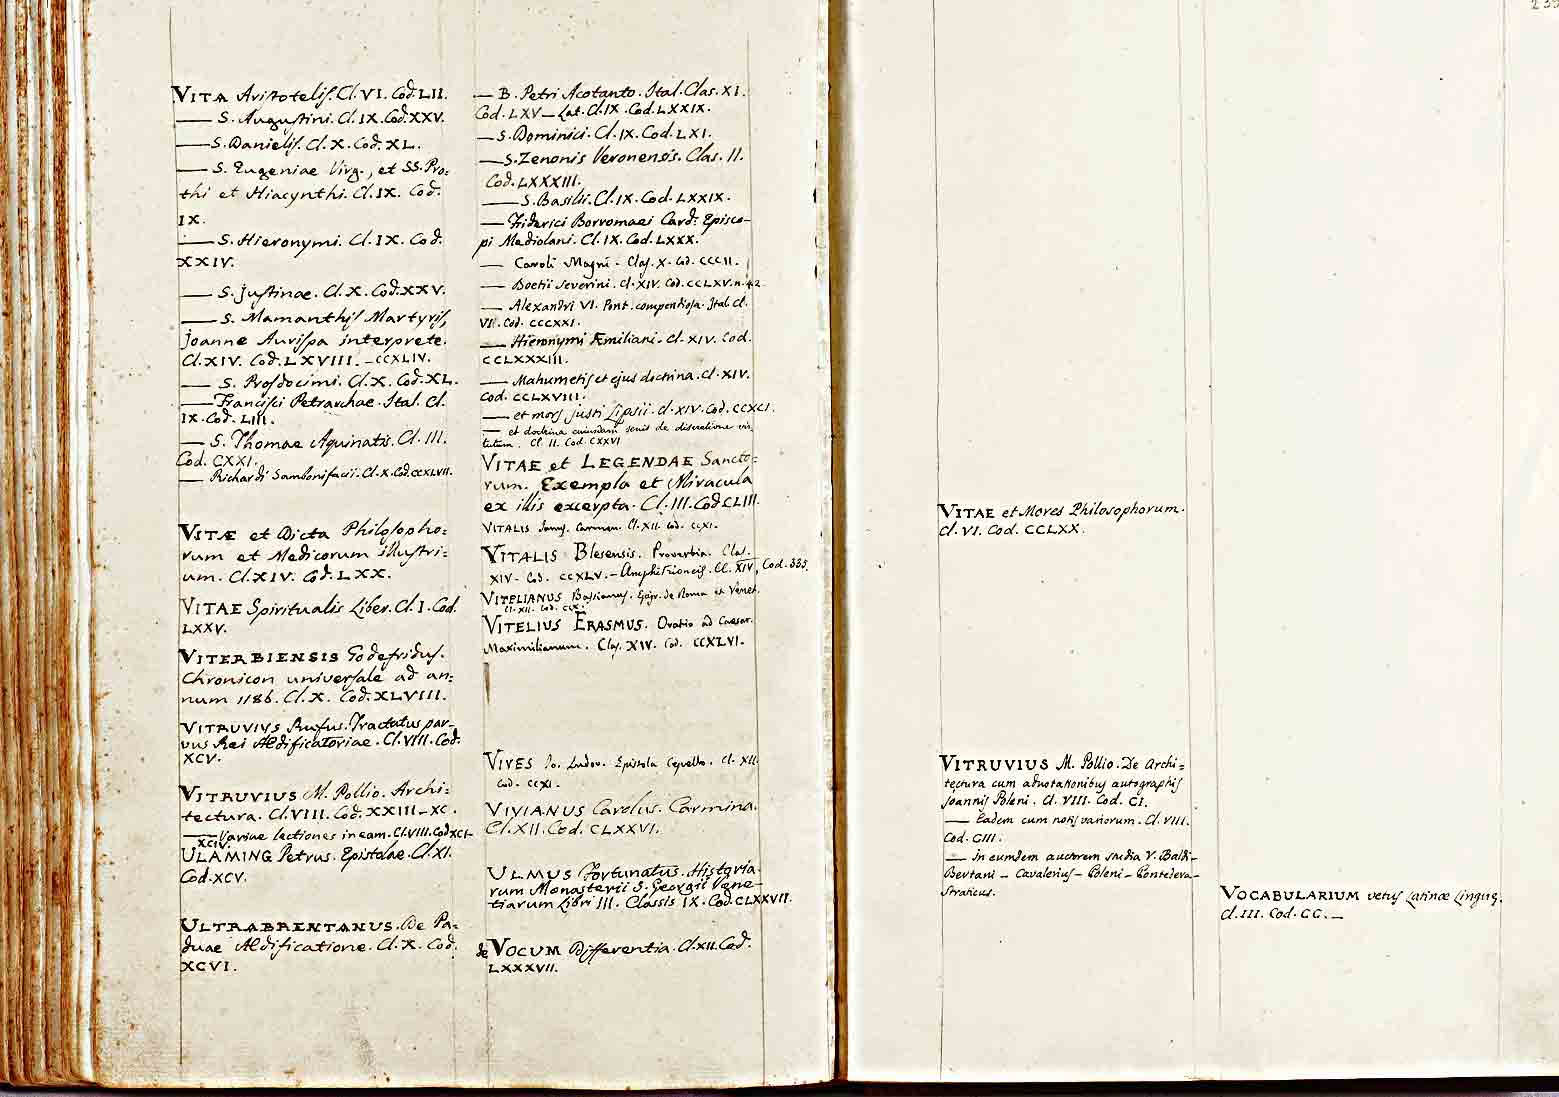 VITA Aristotelis. Cl. VI. Cod. LII.
— S. Augustini. Cl. IX. Cod. XXV.
— S. Danielis. Cl. X. Cod. XL.
— S. Eugeniae Virg., et SS. Pro:
thi et Hiacynthi. Cl. IX. Cod.
IX.
— S. Hieronymi. Cl. IX. Cod.
XXIV.
— S. Justinae. Cl. X. Cod. XXV.
— S. Mamanthis Martyris,
Joanne Aurispa interprete.
Cl. XIV. Cod. LXVIII. – CCXLIV.
— S. Prosdocimi. Cl. X. Cod. XL.
— Francisci Petrarchae. Ital. Cl.
IX. Cod. LIII.
— S. Thomae Aquinatis. Cl. III.
Cod. CXXI.
— Richardi Sambonifacii. Cl. X. Cod. CCXLVII.
VITÆ et Dicta Philosopho:
rum et Medicorum illustri:
um. Cl. XIV. Cod. LXX.
VITAE Spiritualis Liber. Cl. I. Cod.
LXXV.
VITERBIENSIS Godefridus.
Chronicon universale ad an:
num 1186. Cl. X. Cod. XLVIII.
VITRUVIUS Rufus. Tractatus par-
vus Rei Ædificatoriae. Cl. VIII. Cod.
XCV.
VITRUVIUS M. Pollio. Archi:
tectura. Cl. VIII. Cod. XXIII – XC.
— Variae lectiones in eam. Cl. VIII. Cod. XCI –
XCIV.
ULAMING Petrus. Epistolae. Cl. XI.
Cod. XCV.
ULTRABRENTANUS. De Pa:
duae Ædificatione. Cl. X. Cod.
XCVI.
— B. Petri Acotanto. Ital. Clas. XI.
Cod. LXV – Lat. Cl. IX. Cod. LXXIX.
— S. Dominici. Cl. IX. Cod. LXI.
— S. Zenonis Veronensis. Clas. II.
Cod. LXXXIII.
— S. Basilii. Cl. IX. Cod. LXXIX.
— Friderici Borromaei Card. Episco-
pi Mediolani. Cl. IX. Cod. LXXX.
— Caroli Magni. Clas. X. Cod. CCCII.
— Boetii Severini. Cl. XIV. Cod. CCLXV. n. 42.
— Alexandri VI. Pont. compendiosa. Ital. Cl.
VII. Cod. CCCXXI.
— Hieronymi Æmiliani. Cl. XIV. Cod.
CCLXXXIII.
— Mahumetis et ejus doctrina. Cl. XIV.
Cod. CCLXVIII.
— et mors Justi Lipsii. Cl. XIV. Cod. CCXCI.
— et doctrina cuiusdam senis de discretione vir
tutum. Cl. II. Cod. CXXVI
VITAE et LEGENDAE Sancto:
rum. Exempla et Miracula
ex illis excerpta. Cl. III. Cod. CLIII.
VITALIS Carmen. Cl. XII. Cod. CCXI.
VITALIS Blesensis. Proverbia. Clas.
XIV. Cod. CCXLV. – Amphitrioneis. Cl. XIV, Cod. 335.
VITELIANUS Bassianus. de Roma et Venet.
Cl. XII. Cod.
VITELIUS ERASMUS. Oratio ad Caesar.
Maximilianum. Clas. XIV. Cod. CCXLVI.
VIVES Jo. Ludov. Epistola Capello. Cl. XII.
Cod. CCXI.
VIVIANUS Carolus. Carmina.
Cl. XII. Cod. CLXXVI.
ULMUS Fortunatus. Historia-
rum Monasterii S. Georgii Vene-
tiarum Libri III. Classis IX. Cod. CLXXVII.
de VOCUM Differentia. Cl. XII. Cod.
LXXXVII.
VITAE et Mores Philosophorum.
Cl. VI. Cod. CCLXX.
VITRUVIUS M. Pollio. De Archi=
tectura cum adnotationibus autographis
Joannis Poleni. Cl. VIII. Cod. CI.
— Eadem cum notis variorum. Cl. VIII.
Cod. CIII.
— in eumdem auctorem studia V. Baldi –
Bertani – Cavalerius – Poleni – Pontedera –
Straticus.
VOCABULARIUM vetus Latinæ Linguæ.
Cl. III. Cod. CC. –